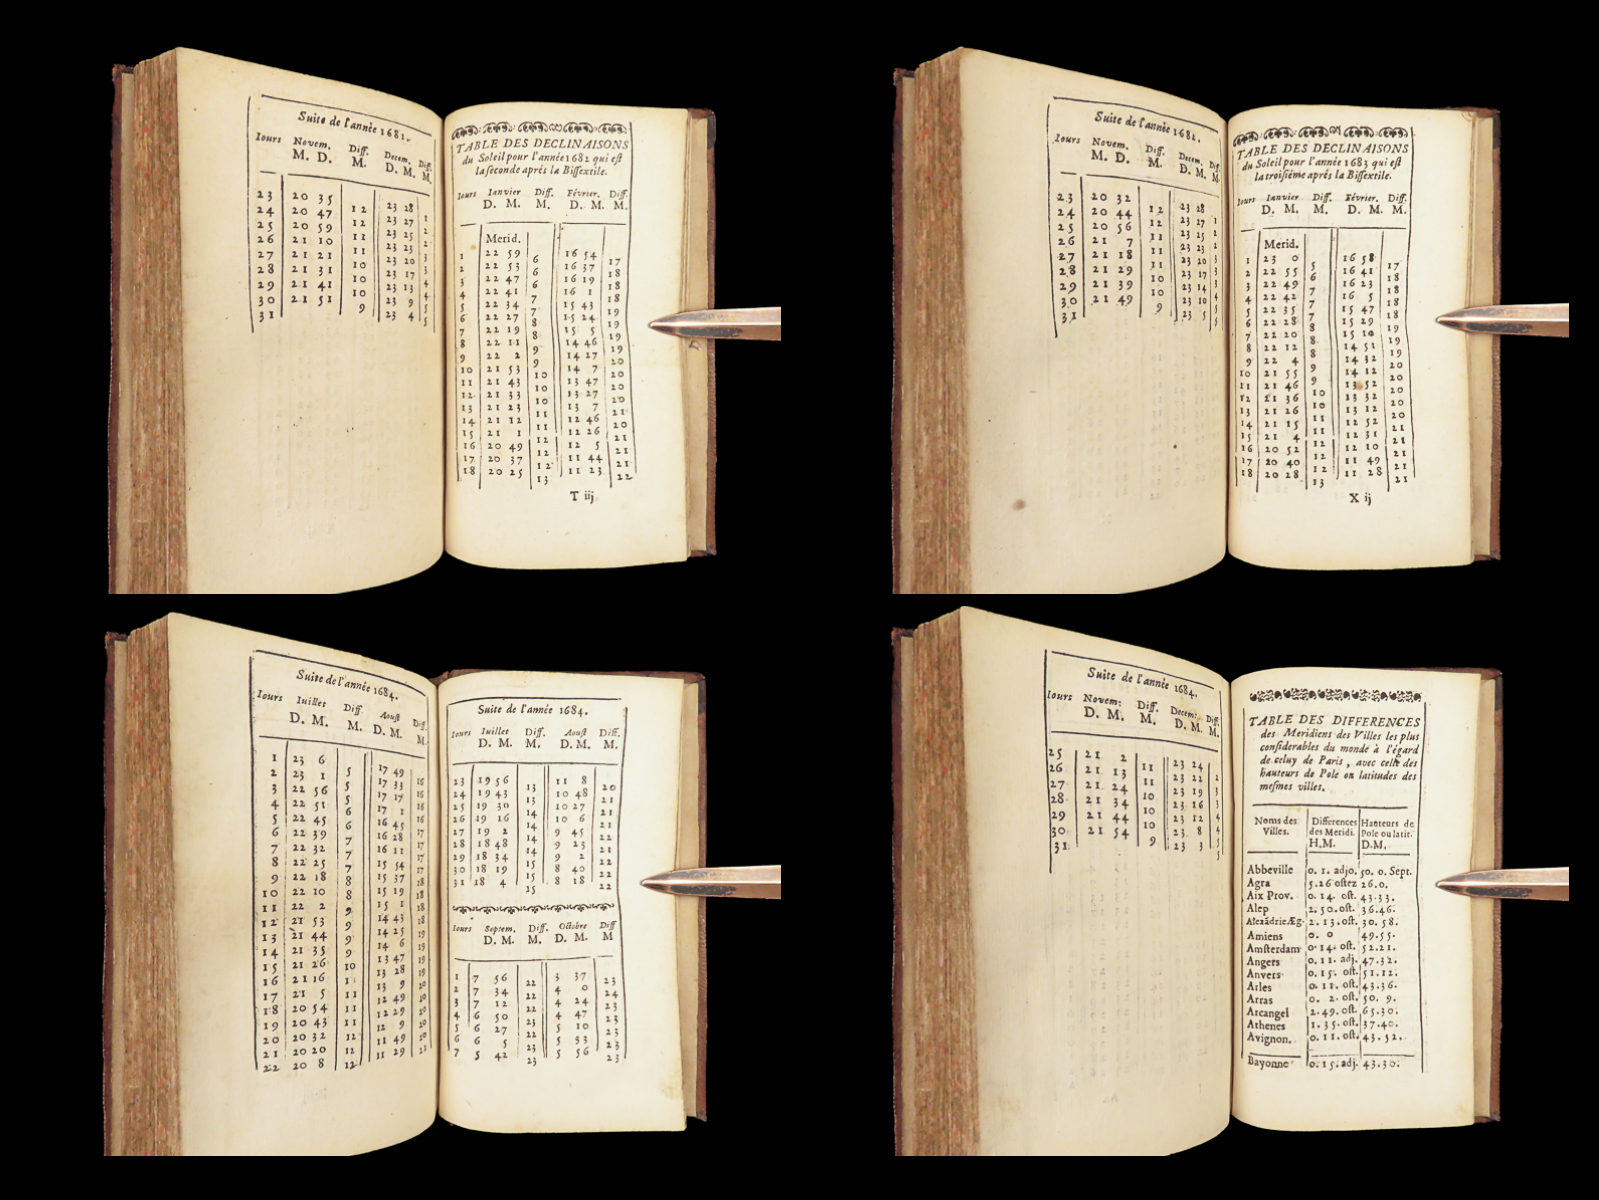 Suite de l'année 1681.
Iours Novem. Diff. Decem. Diff.
M. D. M. D. M. M.
23 20 35 23 28
24 20 47 12 23 27 1
25 20 59 12 23 25 2
26 21 10 11 23 23 2
27 21 21 11 23 20 3
28 21 31 10 23 17 3
29 21 41 10 23 13 4
30 21 51 10 23 9 4
31 9 23 4 5
TABLE DES DECLINAISONS
du Soleil pour l'année 1682 qui est
la seconde aprés la Bissextile.
Iours Ianvier Diff. Février. Diff.
D. M. M. D. M. M.
Merid.
1 22 59 16 54
2 22 53 6 16 37 17
3 22 47 6 16 19 18
4 22 41 6 16 1 18
5 22 34 7 15 43 18
6 22 27 7 15 24 19
7 22 19 8 15 5 19
8 22 11 8 14 46 19
9 22 2 9 14 27 19
10 21 53 9 14 7 20
11 21 43 10 13 47 20
12 21 33 10 13 27 20
13 21 23 10 13 7 20
14 21 12 46 21
15 21 1 11 12 26 20
16 20 49 12 12 5 21
17 20 37 12 11 44 21
18 20 25 12 11 23 21
13 22
T iij
Suite de l'année 1682.
Iours Novem. Diff. Decem. Diff.
M. D. M. D. M. M.
23 20 32 23 28
24 20 44 12 23 27 1
25 20 56 12 23 25 2
26 21 7 11 23 23 2
27 21 18 11 23 20 3
28 21 29 11 23 17 3
29 21 39 10 23 14 3
30 21 49 10 23 10 4
31 9 23 5 5
TABLE DES DECLINAISONS
du Soleil pour l'année 1683 qui est
la troisiéme aprés la Bissextile.
Iours Ianvier Diff. Février. Diff.
D. M. M. D. M. M.
Merid.
1 23 0 16 58
2 22 55 5 16 41 17
3 22 49 6 16 23 18
4 22 42 7 16 5 18
5 22 35 7 15 47 18
6 22 28 7 15 29 18
7 22 20 8 15 10 19
8 22 12 8 14 51 19
9 22 4 8 14 32 19
10 21 55 9 14 12 20
11 21 46 9 13 52 20
12 21 36 10 13 32 20
13 21 26 10 13 12 20
14 21 15 11 12 52 20
15 21 4 11 12 31 21
16 20 52 12 12 10 21
17 20 40 12 11 49 21
18 20 28 12 11 28 21
13 21
X ij
Suite de l'année 1684.
Iours Iuillet Diff Aoust Diff
D. M. M. D. M. M.
1 23 6 17 49
2 23 1 5 17 33 16
3 22 56 5 17 17 16
4 22 51 5 17 1 16
5 22 45 6 16 45 16
6 22 39 6 16 28 17
7 22 32 7 16 11 17
8 22 25 7 15 54 17
9 22 18 7 15 37 17
10 22 10 8 15 19 18
11 22 2 8 15 1 18
12 21 53 9 14 43 18
13 21 44 9 14 25 18
14 21 35 9 14 6 19
15 21 26 9 13 47 19
16 21 16 10 13 28 19
17 21 5 11 13 9 19
18 20 54 11 12 49 20
19 20 43 11 12 29 20
20 20 32 11 12 9 20
21 20 20 12 11 49 20
22 20 8 12 11 29 20
12 21
Suite de l'année 1684.
Iours Iuillet Diff. Aoust Diff.
D. M. M. D. M. M
23 19 56 11 8
24 19 43 13 10 48 20
25 19 30 13 10 27 21
26 19 16 14 10 6 21
27 19 2 14 9 45 21
28 18 48 14 9 23 22
29 18 34 14 9 2 21
30 18 19 15 8 40 22
31 18 4 15 8 18 22
15 22
Iours Septem. Diff. Octobre Diff
D. M. M. D. M. M
1 7 56 3 37
2 7 34 22 4 0 23
3 7 12 22 4 24 24
4 6 50 22 4 47 23
5 6 27 23 5 10 23
6 6 5 22 5 33 23
7 5 42 23 5 56 23
23 23
Suite de l'année 1684.
Iours Novem. Diff. Decem. Diff.
D. M. M. D. M. M.
25 21 2 23 24
26 21 13 11 23 22 2
27 21 24 11 23 19 3
28 21 34 10 23 16 3
29 21 44 10 23 12 4
30 21 54 10 23 8 4
31 9 23 3 5
TABLE DES DIFFERENCES
des Meridiens des Villes les plus
considerables du monde à l'égard
de celuy de Paris, avec celle des
hauteurs de Pole ou latitudes des
mesmes villes.
Noms des Differences Hauteurs de
Villes. des Meridi. Pole ou latit.
H. M. D. M.
Abbeville 0. 1. adjo. 50. 0. Sept.
Agra 5. 26 ostez 26. 0.
Aix Prov. 0. 14. ost. 43. 33.
Alep 2. 50. ost. 36. 46.
AlexãdrieÆg. 2. 13. ost. 30. 58.
Amiens 0. 0 49. 55.
Amsterdam 0. 14. ost. 52. 21.
Angers 0. 11. adj. 47. 32.
Anvers 0. 15. ost. 51. 12.
Arles 0. 11. ost. 43. 36.
Arras 0. 2. ost. 50. 9.
Arcangel 2. 49. ost. 65. 30.
Athenes 1. 35. ost. 37. 40.
Avignon. 0. 11. ost. 43. 52.
Bayonne 0. 15. adj. 43. 30.